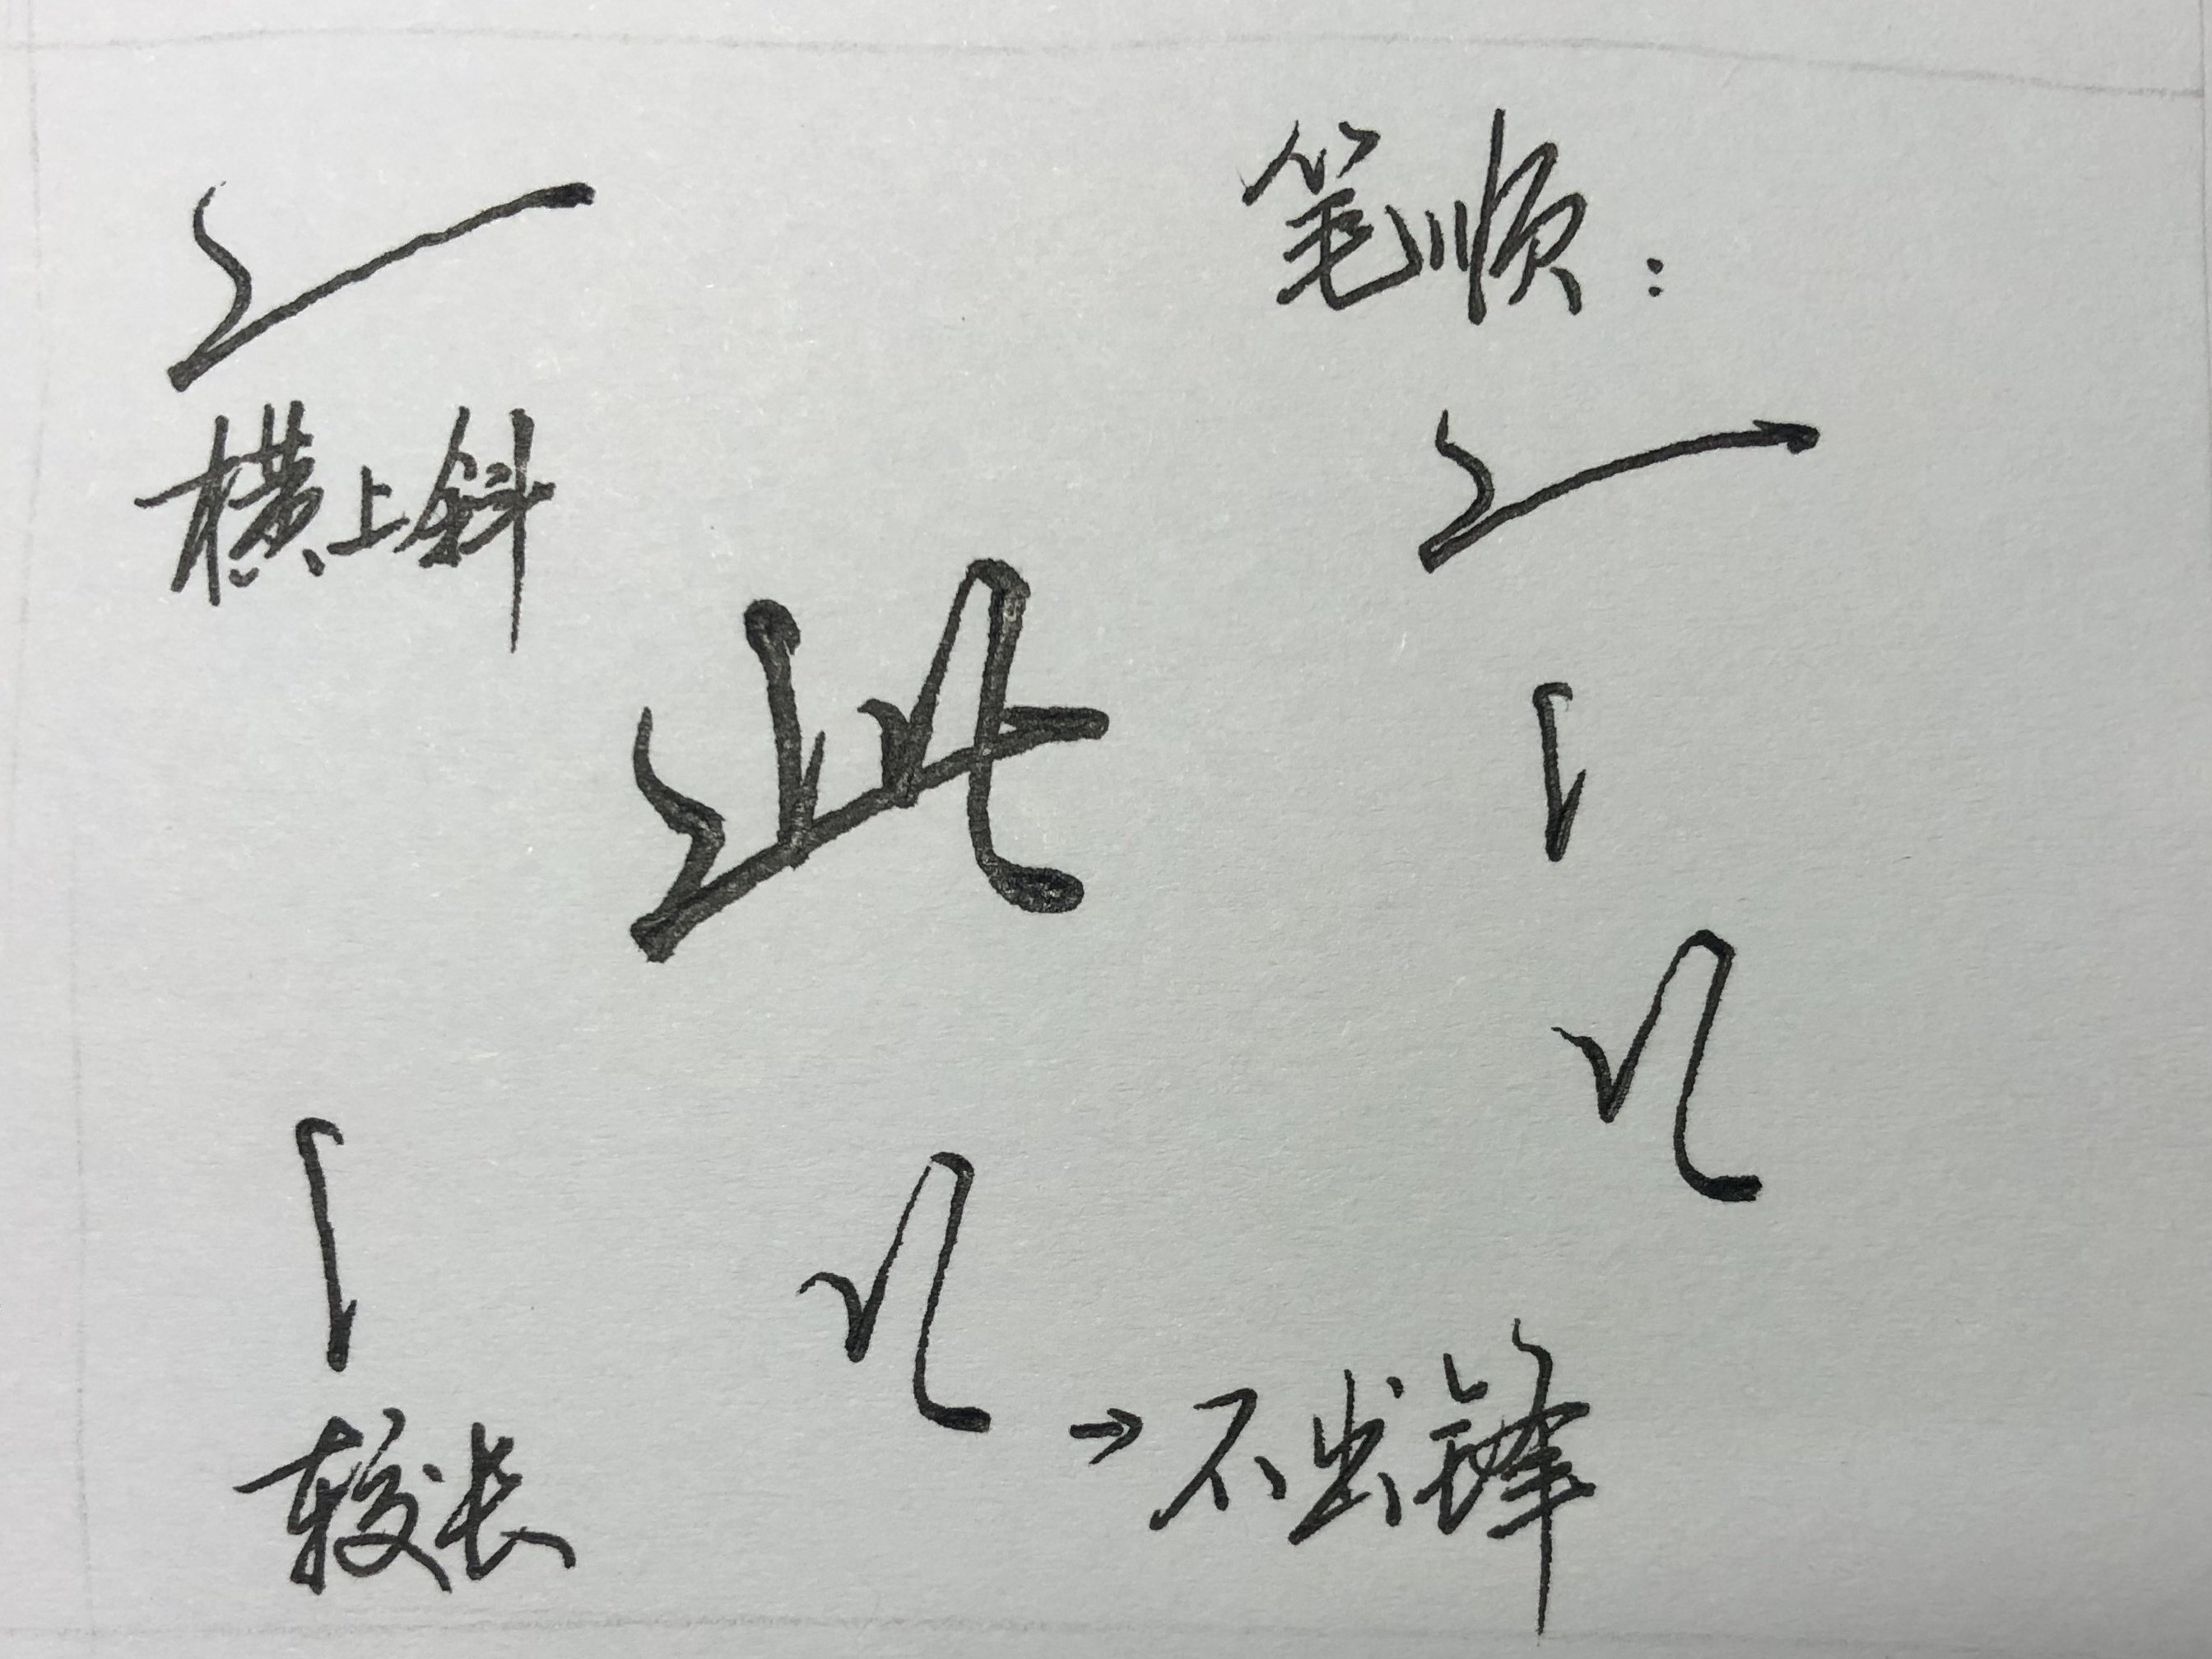 笔顺：
横上斜
此
较长
→不出锋